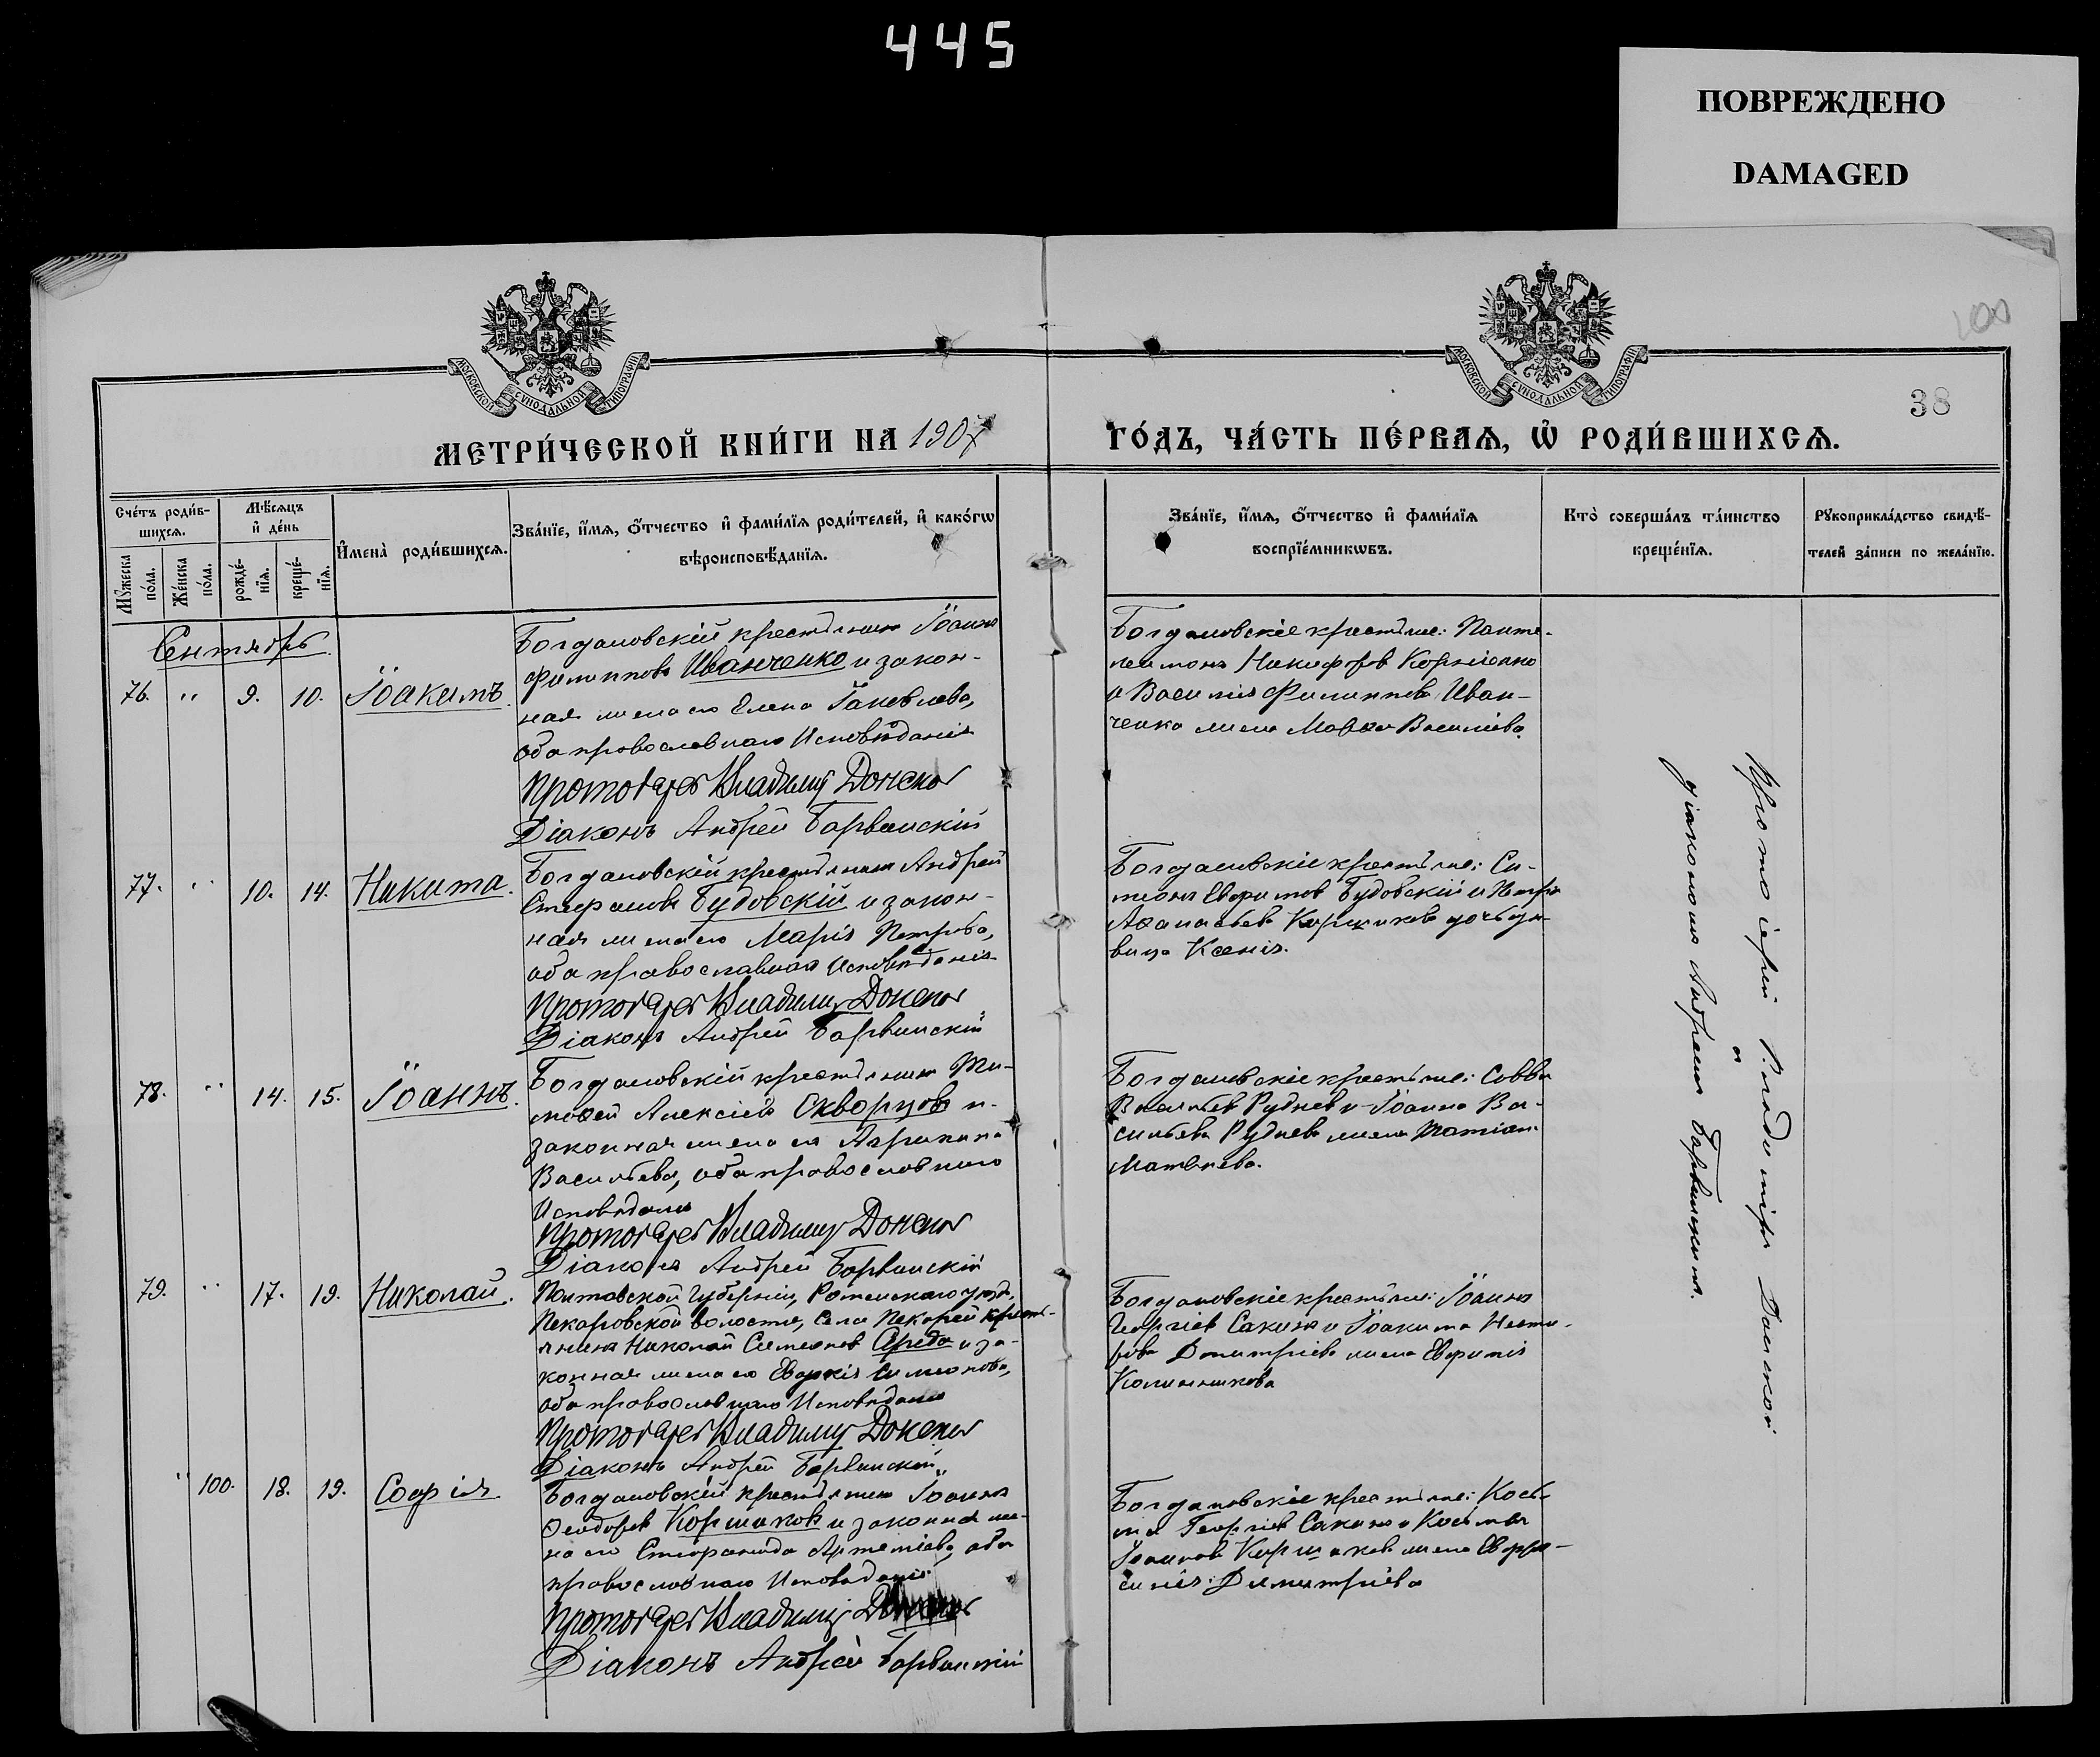 445
ПОВРЕЖДЕНО
DAMAGED
100
38
МОСКОВСКОЙ СУНОДАЛЬНОЙ ТИПОГРАФІИ
МОСКОВСКОЙ СУНОДАЛЬНОЙ ТИПОГРАФІИ
МЕТРИ́ЧЕСКОЙ КНИ́ГИ НА 1907
ГО́ДЪ, ЧА́СТЬ ПЕ́РВАѦ, Ѡ҆ РОДИ́ВШИХСѦ.
Сче́тъ роди́в-
шихсѧ.
Мꙋжеска по́ла.
Же́нска по́ла.
Мѣ́сѧцъ и҆ де́нь
рожде́-нїѧ.
креще́-нїѧ.
И҆мена̀ роди́вшихсѧ.
Зва́нїе, и҆́мѧ, ѻ҆́тчество и҆ фами́лїѧ роди́телей, и҆ како́гѡ
вѣроисповѣ́данїѧ.
Зва́нїе, и҆́мѧ, ѻ҆́тчество и҆ фами́лїѧ
воспрїе́мникѡвъ.
Кто̀ соверша́лъ та́инство
креще́нїѧ.
Рꙋкоприкла́дство свидѣ́-
телей за́писи по жела́нїю.
Сентябрь
76. " 9. 10. Іоакимъ.
Богдановскій крестьянинъ Іоаннъ
Филипповъ Иванченко и закон-
ная жена его Елена Іаковлева,
оба православнаго Исповѣданія
Протоіерей Владиміръ Донской
Діаконъ Андрей Барвинскій
Богдановскіе крестьяне: Панте-
леимонъ Никифоровъ Корниенко
и Василія Филиппова Иван-
ченка жена Марѳа Василіева.
77. " 10. 14. Никита.
Богдановскій крестьянинъ Андрей
Стефановъ Будовскій и закон-
ная жена его Марія Петрова,
оба православнаго Исповѣданія
Протоіерей Владиміръ Донской
Діаконъ Андрей Барвинскій
Богдановскіе крестьяне: Си-
меонъ Евфимовъ Будовскій и Петра
Аѳанасьева Коршикова дочь дѣ-
вица Ксенія.
78. " 14. 15. Іоаннъ.
Богдановскій крестьянинъ Ти-
моѳей Алексіевъ Скворцовъ и
законная жена его Агрипина
Васильева, оба православнаго
Исповѣданія
Протоіерей Владиміръ Донской
Діаконъ Андрей Барвинскій
Богдановскіе крестьяне: Савва
Васильевъ Рудневъ и Іоанна Ва-
сильева Руднева жена Татіана
Матвѣева.
79. " 17. 19. Николай.
Полтавской Губерніи, Роменскаго уѣзда,
Пекаровской волости, Села Пекарей кресть-
янинъ Николай Симеоновъ Середа и за-
конная жена его Евдокія Симеонова,
оба православнаго Исповѣданія
Протоіерей Владиміръ Донской
Діаконъ Андрей Барвинскій
Богдановскіе крестьяне: Іоаннъ
Георгіевъ Сакунъ и Іоакима
Димитріева жена Евфимія
Калинникова
" 100. 18. 19. Софія
Богдановскій крестьянинъ Іоаннъ
Ѳеодоровъ Коршаковъ и законная же-
на его Стефанида Артеміева, оба
православнаго Исповѣданія
Протоіерей Владиміръ Донской
Діаконъ Андрей Барвинскій
Богдановскіе крестьяне: Косьма
Георгіевъ Сакунъ и Косьмы
Іоаннова Коршакова жена Евфро-
синія Димитріева
Протоіерей Владиміръ Донской
и
діакономъ Андреемъ Барвинскимъ.